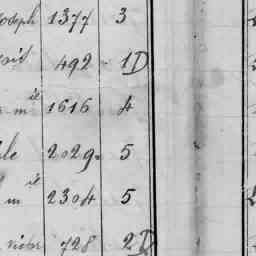 oseph 1377 3
492 1D
m^e 1616 4
le 2029 5
m^e 2304 5
victor 728 2D